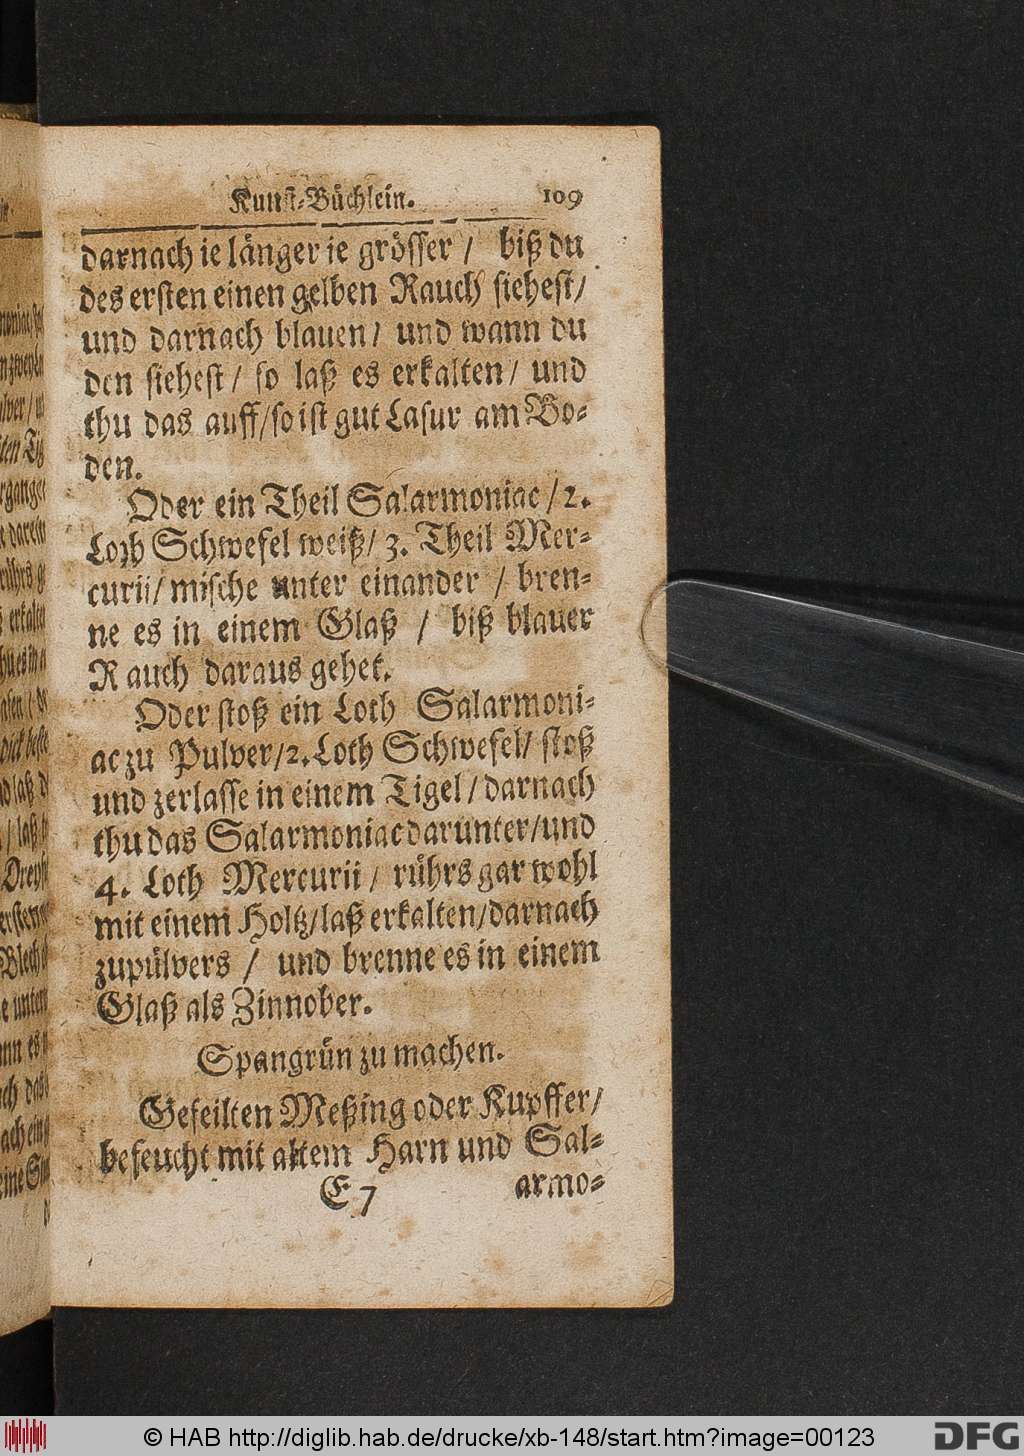 Kunst-Büchlein. 109
darnach ie länger ie grösser / biß du
des ersten einen gelben Rauch siehest/
und darnach blauen/ und wann du
den siehest/ so laß es erkalten/ und
thu das auff/so ist gut Lasur am Bo-
den.
Oder ein Theil Salarmoniac/2.
Loth Schwefel weiß/ 3. Theil Mer-
curii/ mische unter einander / bren-
ne es in einem Glaß / biß blauer
Rauch daraus gehet.
Oder stoß ein Loth Salarmoni-
ac zu Pulver/2. Loth Schwefel/ stoß
und zerlasse in einem Tigel/darnach
thu das Salarmoniac darunter/und
4. Loth Mercurii/ rührs gar wohl
mit einem Holtz/laß erkalten/darnach
zupülvers / und brenne es in einem
Glaß als Zinnober.
Spangrün zu machen.
Gefeilten Meßing oder Kupffer/
befeucht mit altem Harn und Sal-
E 7 armo-
© HAB http://diglib.hab.de/drucke/xb-148/start.htm?image=00123
DFG